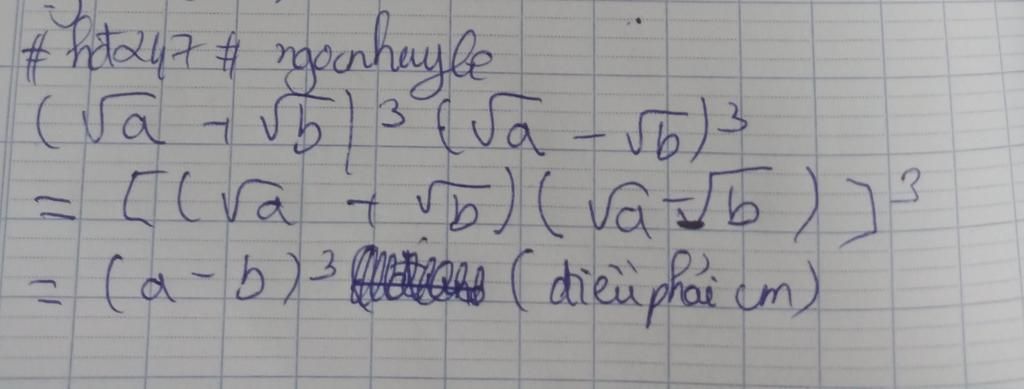 # hđ247 # ngocnhuyle
(√a + √b)³ (√a - √b)³
= [(√a + √b)(√a - √b)]³
= (a - b)³ (điều phải cm)